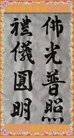 佛光普照
禮儀圓明